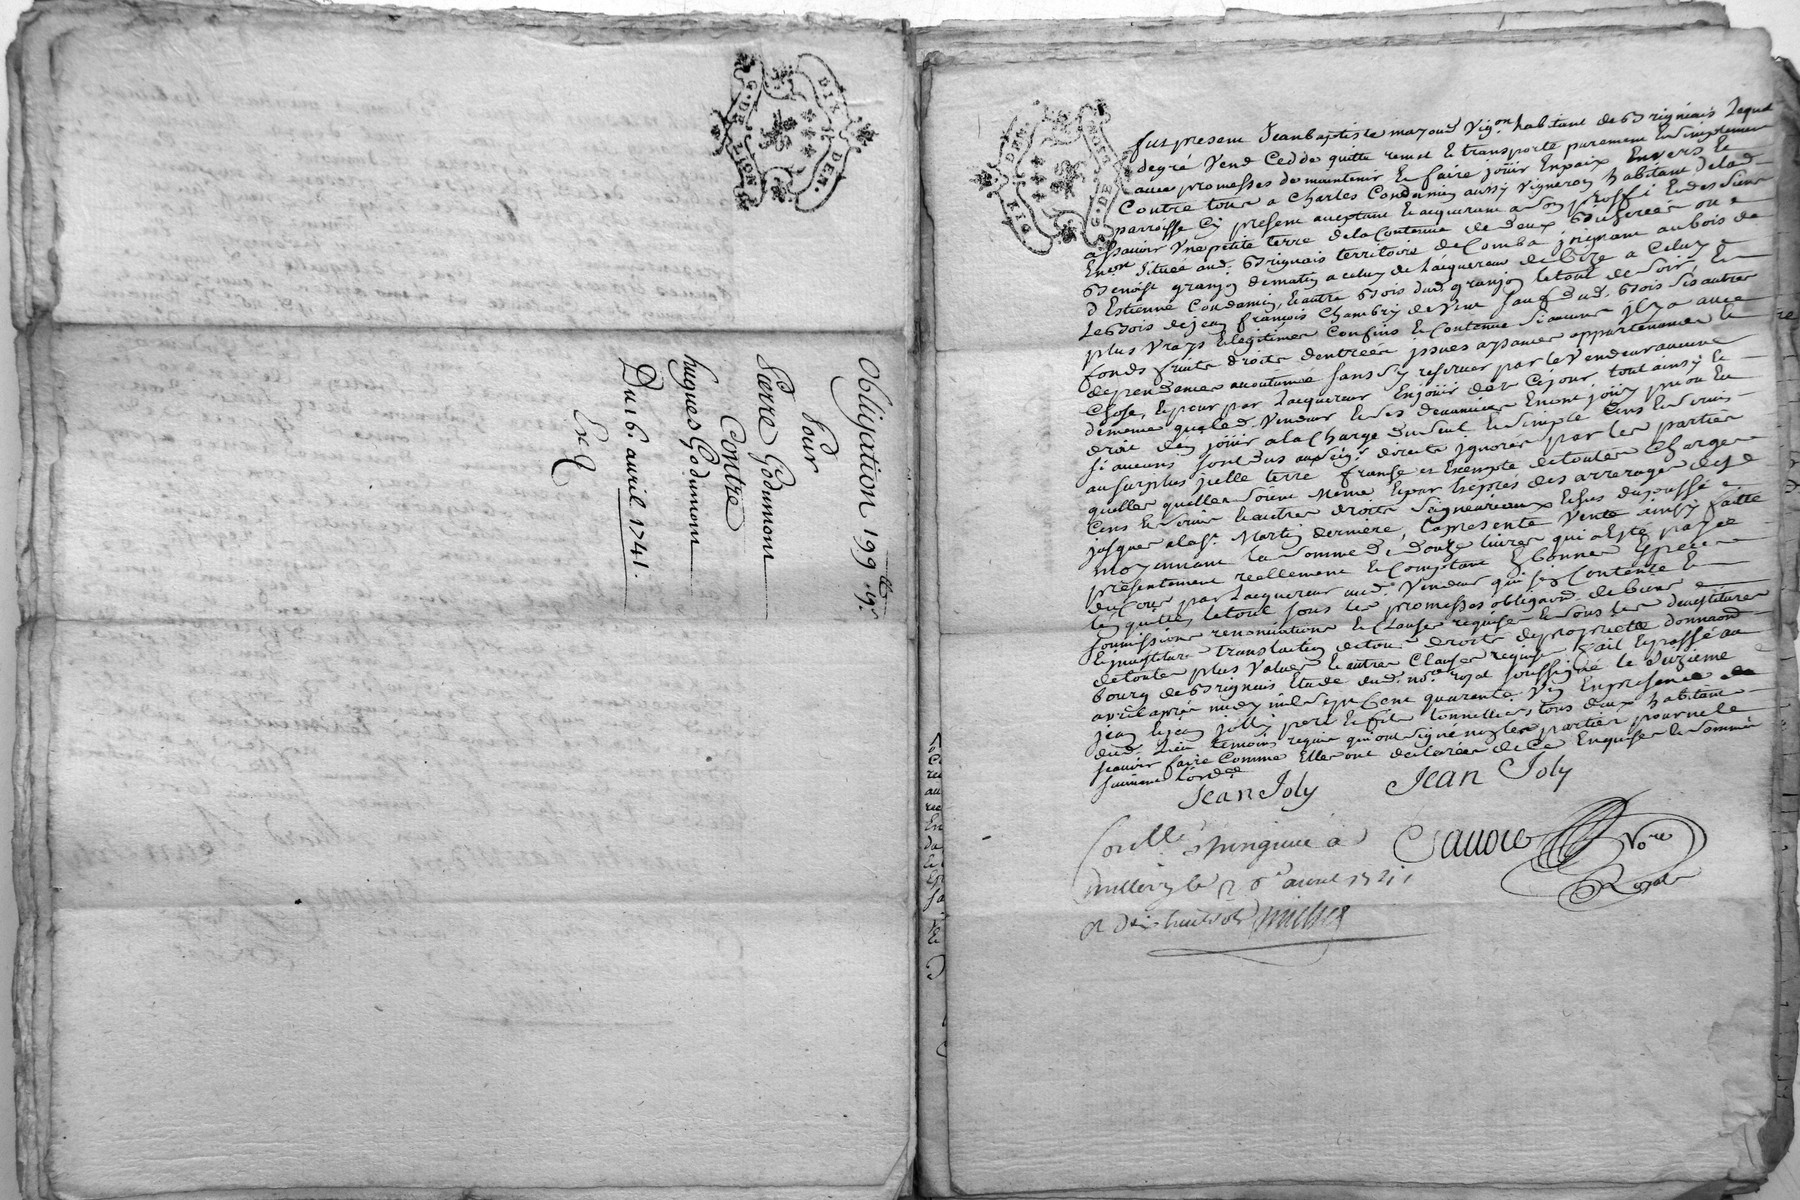 G. DE NOIZ
DIX DEN.
Obligation 199.ᵗᵗ 19.ˢ
Pour
Pierre Godumont
Contre
hugues Godumont
Du 16. auril 1741.
Ex
DIX DEN.
G. DE NOIZ
fut present Jean baptiste mazoud Vig.on habitant de Brignais Lequel
degré Vend Cedde quitte remet Et transporte purement Et Simplement
auec promesses de maintenir Et faire joüir En paix Envers Et
Contre tous a Charles Condamin aussy Vigneron habitant de lad.
parroisse Cy present aceptant Et acquerant a Son proffit Et des Siens
assauoir Vne petite terre de la Contenue de deux Bicherées ou
Enon Située aud. Brignais territoire de Comba joignant au bois de
Benoist granjon de matin a celuy de Lacquereur de bize a Celuy
d'Estienne Condamin, Et autre Bois dud. granjon le tout de Soir, Et
Le Bois de jean françois Chambry de Vent Sauf dud. Bois Ses autres
plus Vrays Et legitimes Confins Et Contenue Si aucune jl y a auec
fonds fruits droits d'entrées jssues aysances appartenances Et
dependances acoutumés Sans S'y reserver par le Vendeur aucune
Chose, Et pour par Lacquereur En joüir des Ce jour tout ainsy Et
de meme que led. Vendeur Et Ses deuanciers En ont joüy pu ou Eu
droit d'En joüir a la Charge du Seul Et Simple Cens Et Seruis
Si aucuns Sont dus aux Seig.rs directs ignorés par les parties
au Surplus jcelle terre franche Et Exempte de toutes Charges
quelles quelles Soient Meme Et par Exprès des arrerages de
Cens Et Seruis Et autres droits Seigneuriaux Echus du passé
jusques a la S.t Martin derniere, La presente Vente ainsy faitte
moyennant la Somme de douze liures qui a Esté payée
présentement reellement Et Comptant En bonnes Especes
du Cours par Lacquereur aud. Vendeur qui S'En Contente Et
L'en quitte, le tout Sous les promesses obligaons de biens
soumissions renonciations Et Clauses requises Et Sous les deuestitures
Et jnuestiture translation de tous droits de proprieté donnaon
de toutes plus Values Et autres Clauses requises fait Et passé au
bourg de Brignais Etude dud. no.re royal Soussigné le Seizieme
auril apres midy mil Sept Cent quarante Vn En presence de
jean Et jean jolly pere Et fils tonnelliers tous deux habitans
dud. Lieu temoins requis qui ont Signé non les parties pour ne le
Scauoir faire Comme Elles ont declarées de Ce Enquises Et Sommées
Suiuant L'ord.ce
Jean Joly Jean Joly
Nore
Royal
Corllé
millery le 26e auril 1741